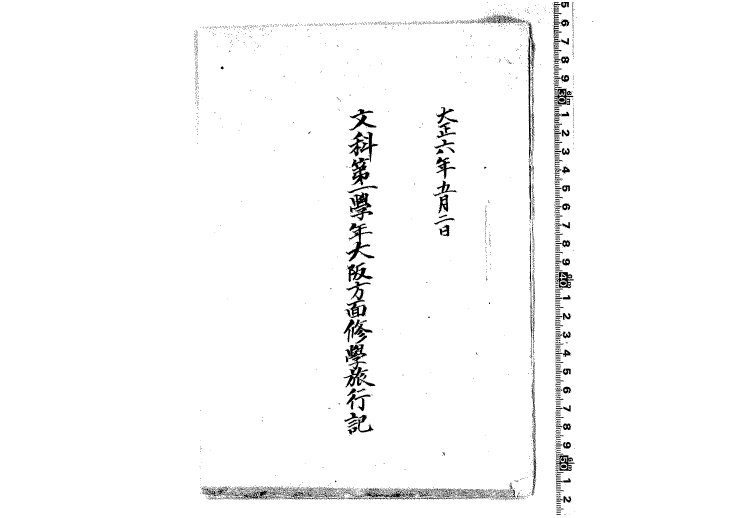 大正六年五月二日
文科第一學年大阪方面修學旅行記
5 6 7 8 9 30 1 2 3 4 5 6 7 8 9 40 1 2 3 4 5 6 7 8 9 50 1 2